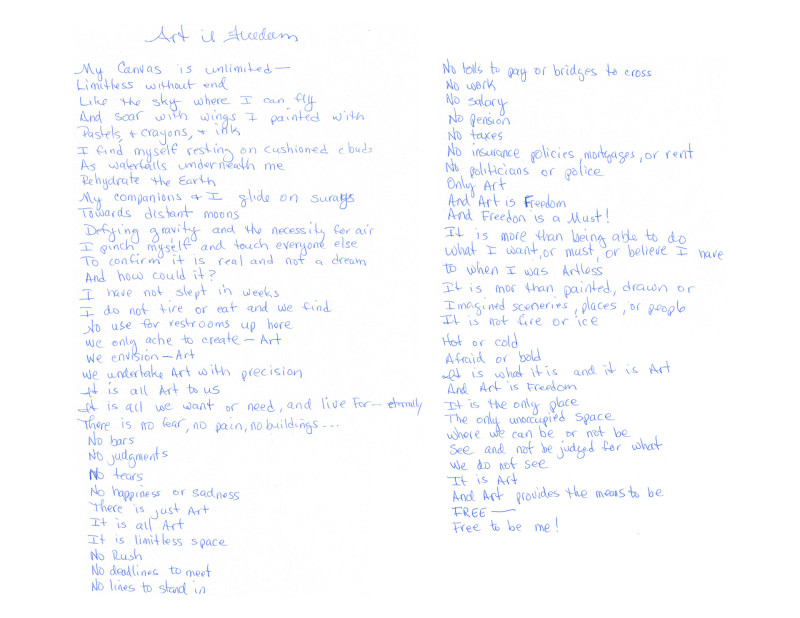 Art is Freedom
My Canvas is unlimited—
Limitless without end
Like the sky where I can fly
And soar with wings I painted with
Pastels, + crayons, + ink
I find myself resting on cushioned clouds
As waterfalls underneath me
Rehydrate the Earth
My companions + I glide on sunrays
Towards distant moons
Defying gravity and the necessity for air
I pinch myself and touch everyone else
To confirm it is real and not a dream
And how could it?
I have not slept in weeks
I do not tire or eat and we find
No use for restrooms up here
We only ache to create—Art
We envision—Art
We undertake Art with precision
It is all Art to us
It is all we want or need, and live for—eternally
There is no fear, no pain, no buildings...
No bars
No judgments
No tears
No happiness or sadness
There is just Art
It is all Art
It is limitless space
No Rush
No deadlines to meet
No lines to stand in
No tolls to pay or bridges to cross
No work
No salary
No pension
No taxes
No insurance policies, mortgages, or rent
No politicians or police
Only Art
And Art is Freedom
And Freedom is a Must!
It is more than being able to do
what I want, or must, or believe I have
to when I was Artless
It is mor than painted, drawn or
Imagined sceneries, places, or people
It is not fire or ice
Hot or cold
Afraid or bold
It is what it is and it is Art
And Art is Freedom
It is the only place
The only unoccupied space
where we can be or not be
See and not be judged for what
We do not see
It is Art
And Art provides the means to be
FREE—
Free to be me!